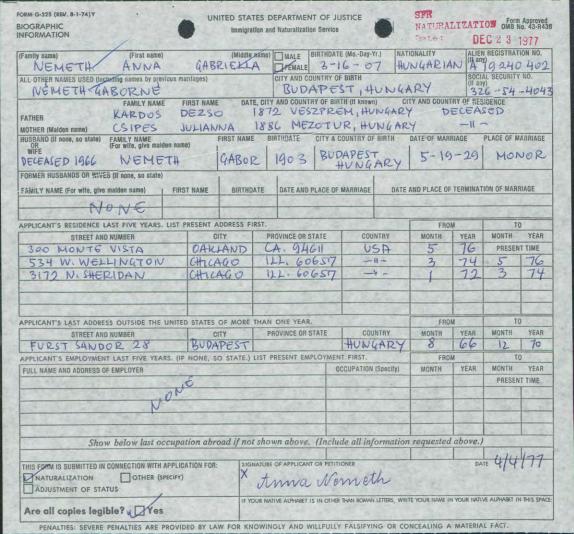 FORM G-325 (REV. 8-1-74)Y
BIOGRAPHIC INFORMATION
UNITED STATES DEPARTMENT OF JUSTICE
Immigration and Naturalization Service
SFR
NATURALIZATION
Date:
DEC 23 1977
Form Approved
OMB No. 43-R436
(Family name) (First name) (Middle name) MALE FEMALE BIRTHDATE (Mo.-Day-Yr.) NATIONALITY ALIEN REGISTRATION NO. (If any)
NEMETH ANNA GABRIELLA 3-16-07 HUNGARIAN A 19 240 402
ALL OTHER NAMES USED (Including names by previous marriages) CITY AND COUNTRY OF BIRTH SOCIAL SECURITY NO. (If any)
NEMETH GABORNE BUDAPEST, HUNGARY 326-54-4043
FAMILY NAME FIRST NAME DATE, CITY AND COUNTRY OF BIRTH (If known) CITY AND COUNTRY OF RESIDENCE
FATHER KARDOS DEZSO 1872 VESZPREM, HUNGARY DECEASED
MOTHER (Maiden name) CSIPES JULIANNA 1886 MEZOTUR, HUNGARY -11-
HUSBAND (If none, so state) OR WIFE FAMILY NAME (For wife, give maiden name) FIRST NAME BIRTHDATE CITY & COUNTRY OF BIRTH DATE OF MARRIAGE PLACE OF MARRIAGE
DECEASED 1966 NEMETH GABOR 1903 BUDAPEST HUNGARY 5-19-29 MONOR
FORMER HUSBANDS OR WIVES (If none, so state)
FAMILY NAME (For wife, give maiden name) FIRST NAME BIRTHDATE DATE AND PLACE OF MARRIAGE DATE AND PLACE OF TERMINATION OF MARRIAGE
NONE
APPLICANT'S RESIDENCE LAST FIVE YEARS. LIST PRESENT ADDRESS FIRST. FROM TO
STREET AND NUMBER CITY PROVINCE OR STATE COUNTRY MONTH YEAR MONTH YEAR
300 MONTE VISTA OAKLAND CA. 94611 USA 5 76 PRESENT TIME
534 W. WELLINGTON CHICAGO ILL. 60657 -11- 3 74 5 76
3172 N. SHERIDAN CHICAGO ILL. 60657 -11- 1 72 3 74
APPLICANT'S LAST ADDRESS OUTSIDE THE UNITED STATES OF MORE THAN ONE YEAR. FROM TO
STREET AND NUMBER CITY PROVINCE OR STATE COUNTRY MONTH YEAR MONTH YEAR
FURST SANDOR 28 BUDAPEST HUNGARY 8 66 12 70
APPLICANT'S EMPLOYMENT LAST FIVE YEARS. (IF NONE, SO STATE.) LIST PRESENT EMPLOYMENT FIRST. FROM TO
FULL NAME AND ADDRESS OF EMPLOYER OCCUPATION (Specify) MONTH YEAR MONTH YEAR
PRESENT TIME
NONE
Show below last occupation abroad if not shown above. (Include all information requested above.)
THIS FORM IS SUBMITTED IN CONNECTION WITH APPLICATION FOR:
NATURALIZATION OTHER (SPECIFY)
ADJUSTMENT OF STATUS
SIGNATURE OF APPLICANT OR PETITIONER DATE 4/4/77
X Anna Nemeth
Are all copies legible? Yes
IF YOUR NATIVE ALPHABET IS IN OTHER THAN ROMAN LETTERS, WRITE YOUR NAME IN YOUR NATIVE ALPHABET IN THIS SPACE:
PENALTIES: SEVERE PENALTIES ARE PROVIDED BY LAW FOR KNOWINGLY AND WILLFULLY FALSIFYING OR CONCEALING A MATERIAL FACT.